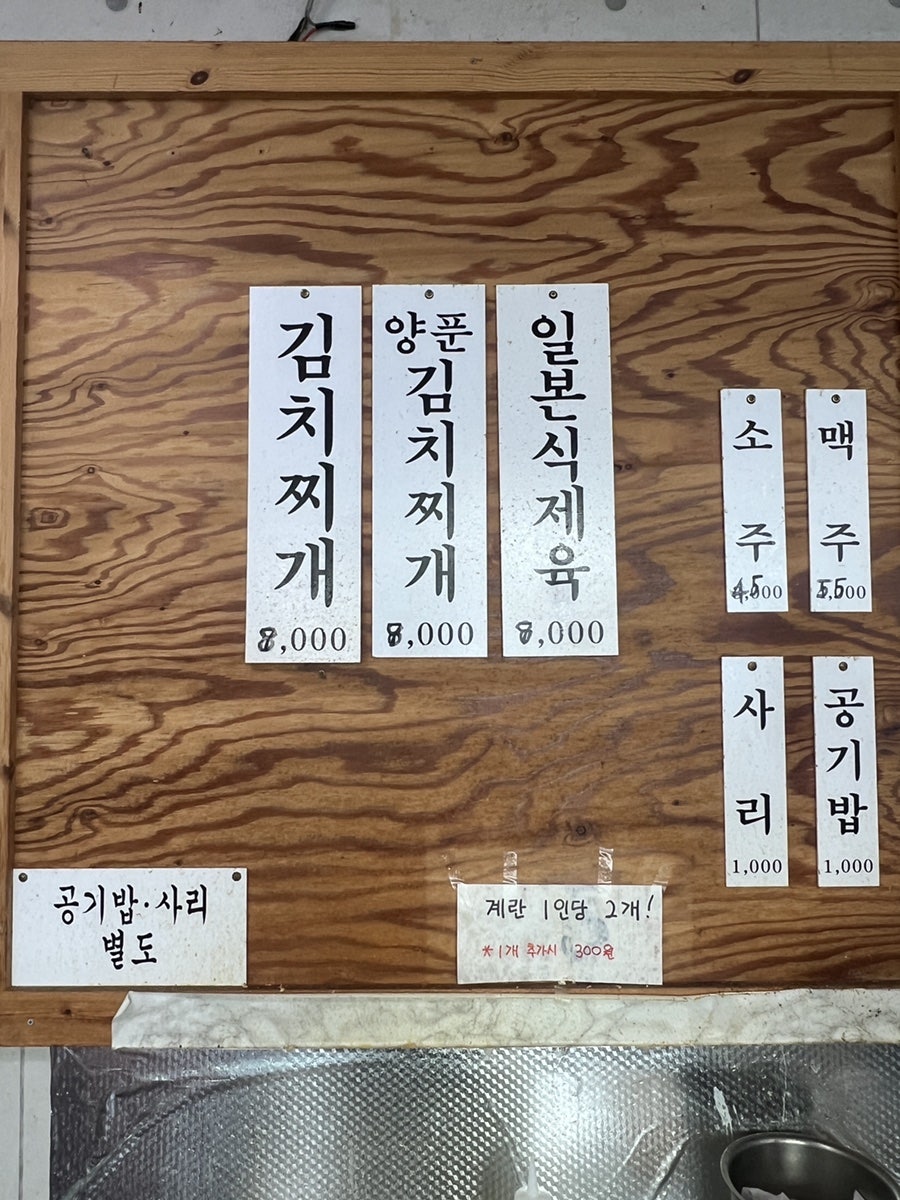 김치찌개
8,000
양푼
김치찌개
8,000
일본식제육
8,000
소주
4,500
맥주
5,500
사리
1,000
공기밥
1,000
공기밥·사리
별도
계란 1인당 2개!
*1개 추가시 300원